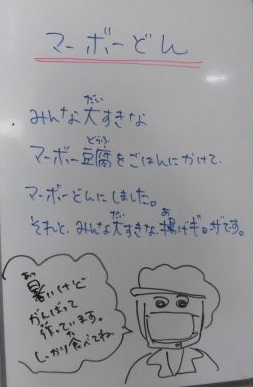 マーボーどん
だい
みんな大すきな
どうふ
マーボー豆腐をごはんにかけて、
マーボーどんにしました。
だい あ
それと、みんな大すきな揚げギョーザです。
あつ
暑いけど
がんばって
作っています。
た
しっかり食べてね